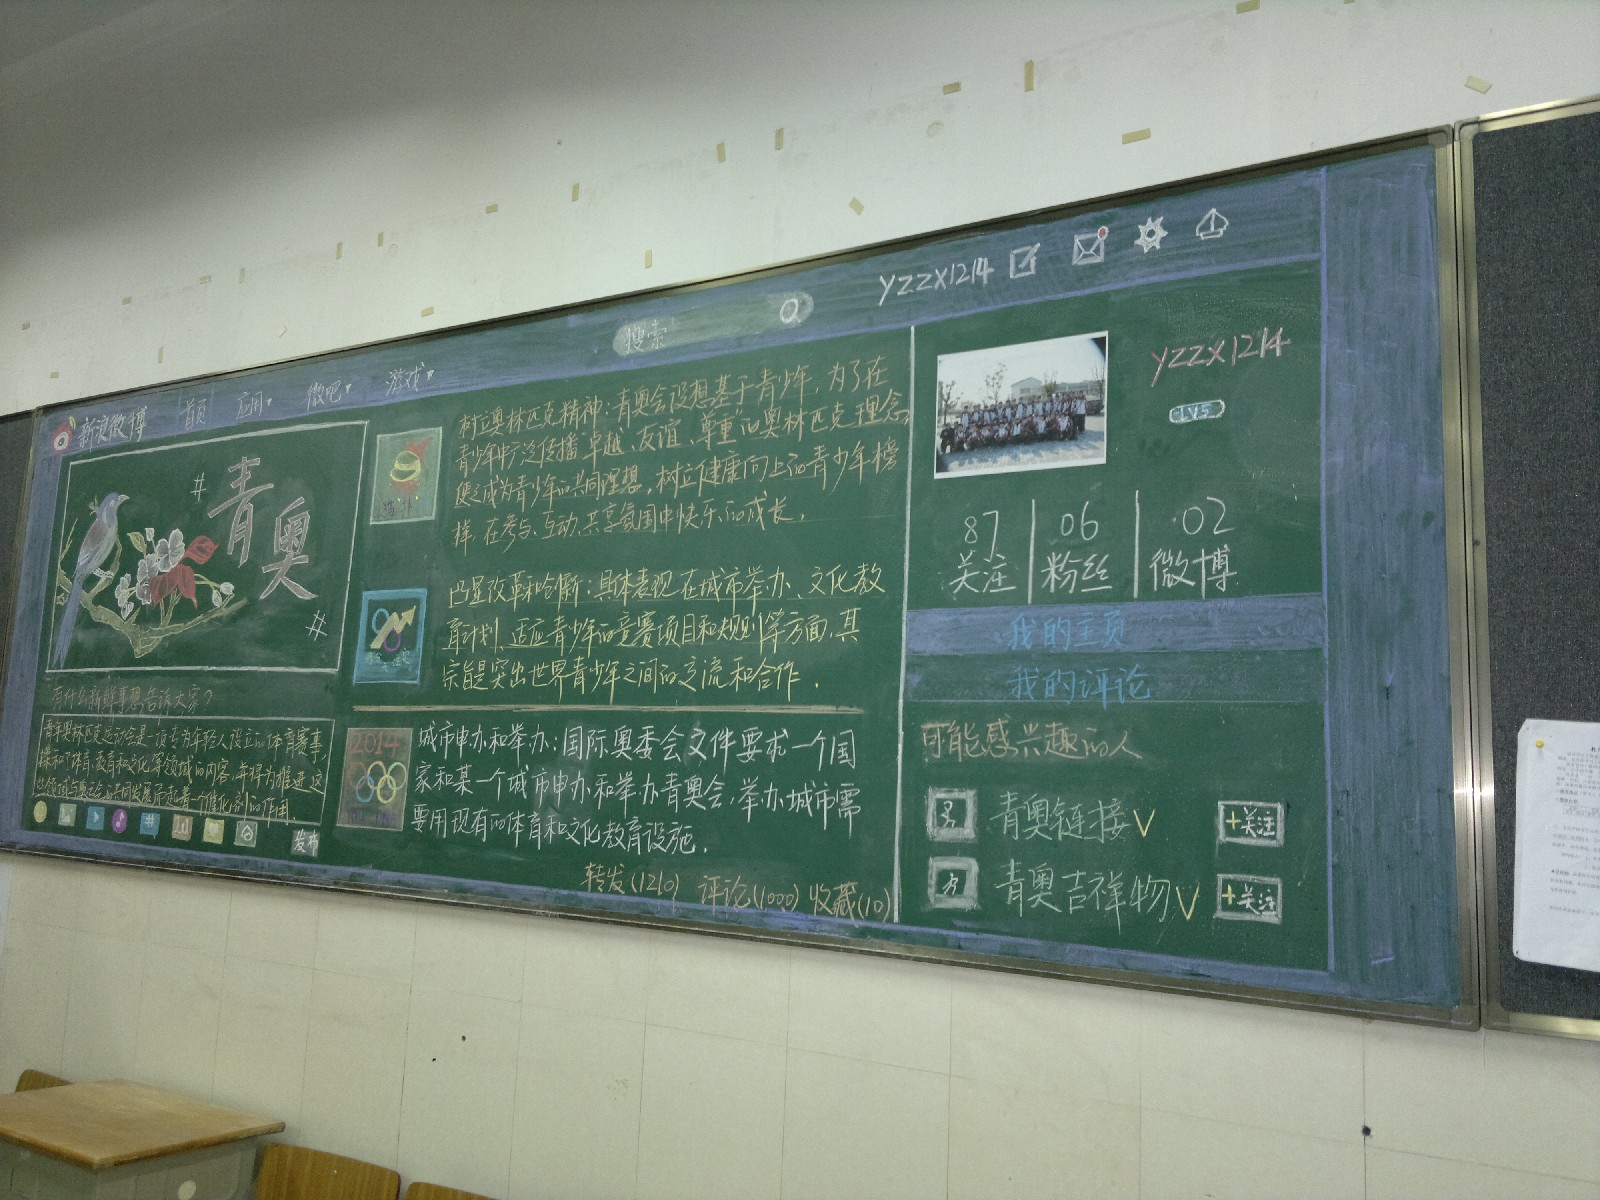 新浪微博 首页 应用 微吧 游戏 搜索 yzzx1214
#青奥#
有什么新鲜事想告诉大家?
青年奥林匹克运动会是一项专为年轻人设立的体育赛事,
揉和了体育、教育和文化等领域的内容,并将为推进这
些领域与奥运会的共同发展而起着一个催化剂的作用.
发布
树立奥林匹克精神:青奥会设想基于青少年,为了在
青少年中广泛传播"卓越、友谊、尊重"的奥林匹克理念,
使之成为青少年的共同理想,树立健康向上的青少年榜
样,在参与、互动、共享氛围中快乐的成长.
凸显改革和创新:具体表现在城市举办、文化教
育计划、适应青少年的竞赛项目和规则等方面,其
宗旨是突出世界青少年之间的交流和合作.
2014
城市申办和举办:国际奥委会文件要求一个国
家和某一个城市申办和举办青奥会,举办城市需
要用现有的体育和文化教育设施.
转发(1210) 评论(1000) 收藏(10)
yzzx1214
LV5
87 06 02
关注 粉丝 微博
我的主页
我的评论
可能感兴趣的人
青奥链接V +关注
青奥吉祥物V +关注